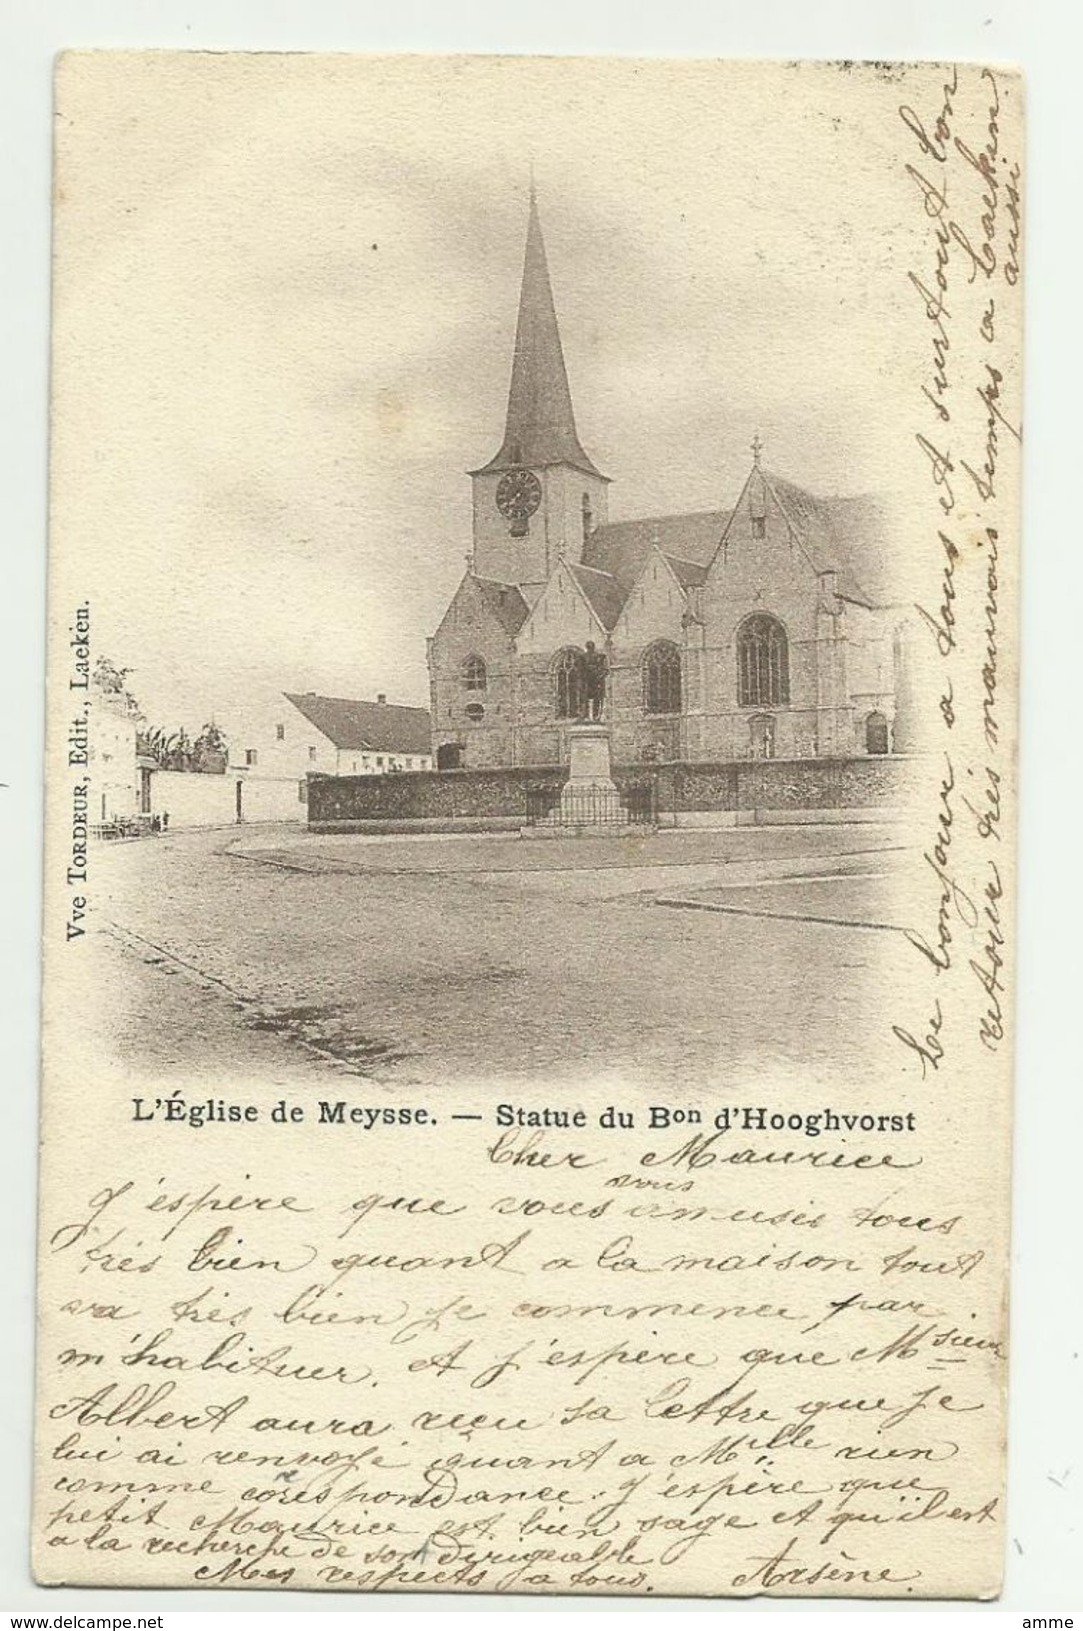 Vve TORDEUR, Edit., Laeken.
L'Église de Meysse. — Statue du Bon d'Hooghvorst
Cher Maurice
J'espère que vous vous amusés tous
très bien quant a la maison tout
va très bien je commence par
m'habituer. et J'espère que Msieur
Albert aura reçu sa lettre que je
lui ai renvoyé quant a Mlle rien
comme corespondance. J'espère que
petit Maurice est bien sage et qu'il est
a la recherche de son dirigeable
Mes respects a tous. Arsène.
Le bonjour a tous et surtout bon
retour très mauvois temps a Laeken
aussi
amme